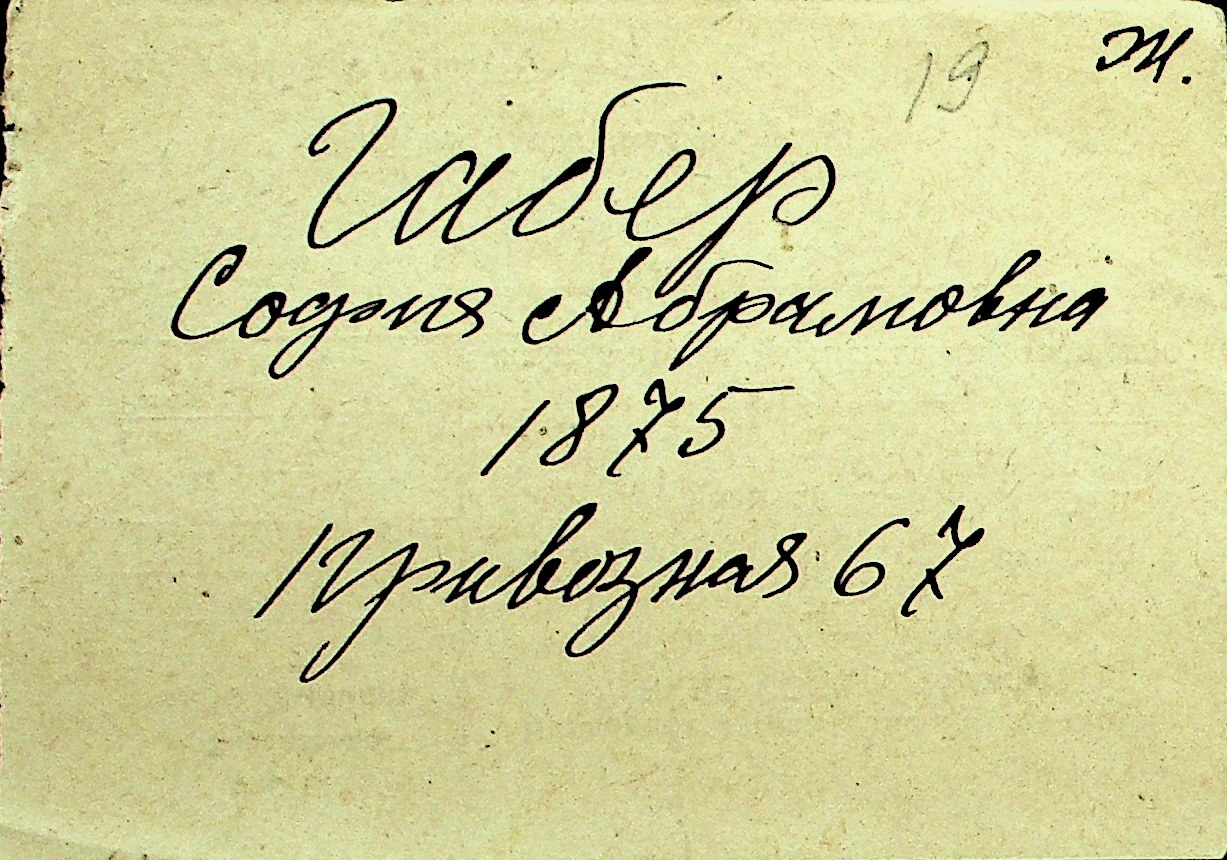 19 Ж.
Габер
София Абрамовна
1875
Привозная 67